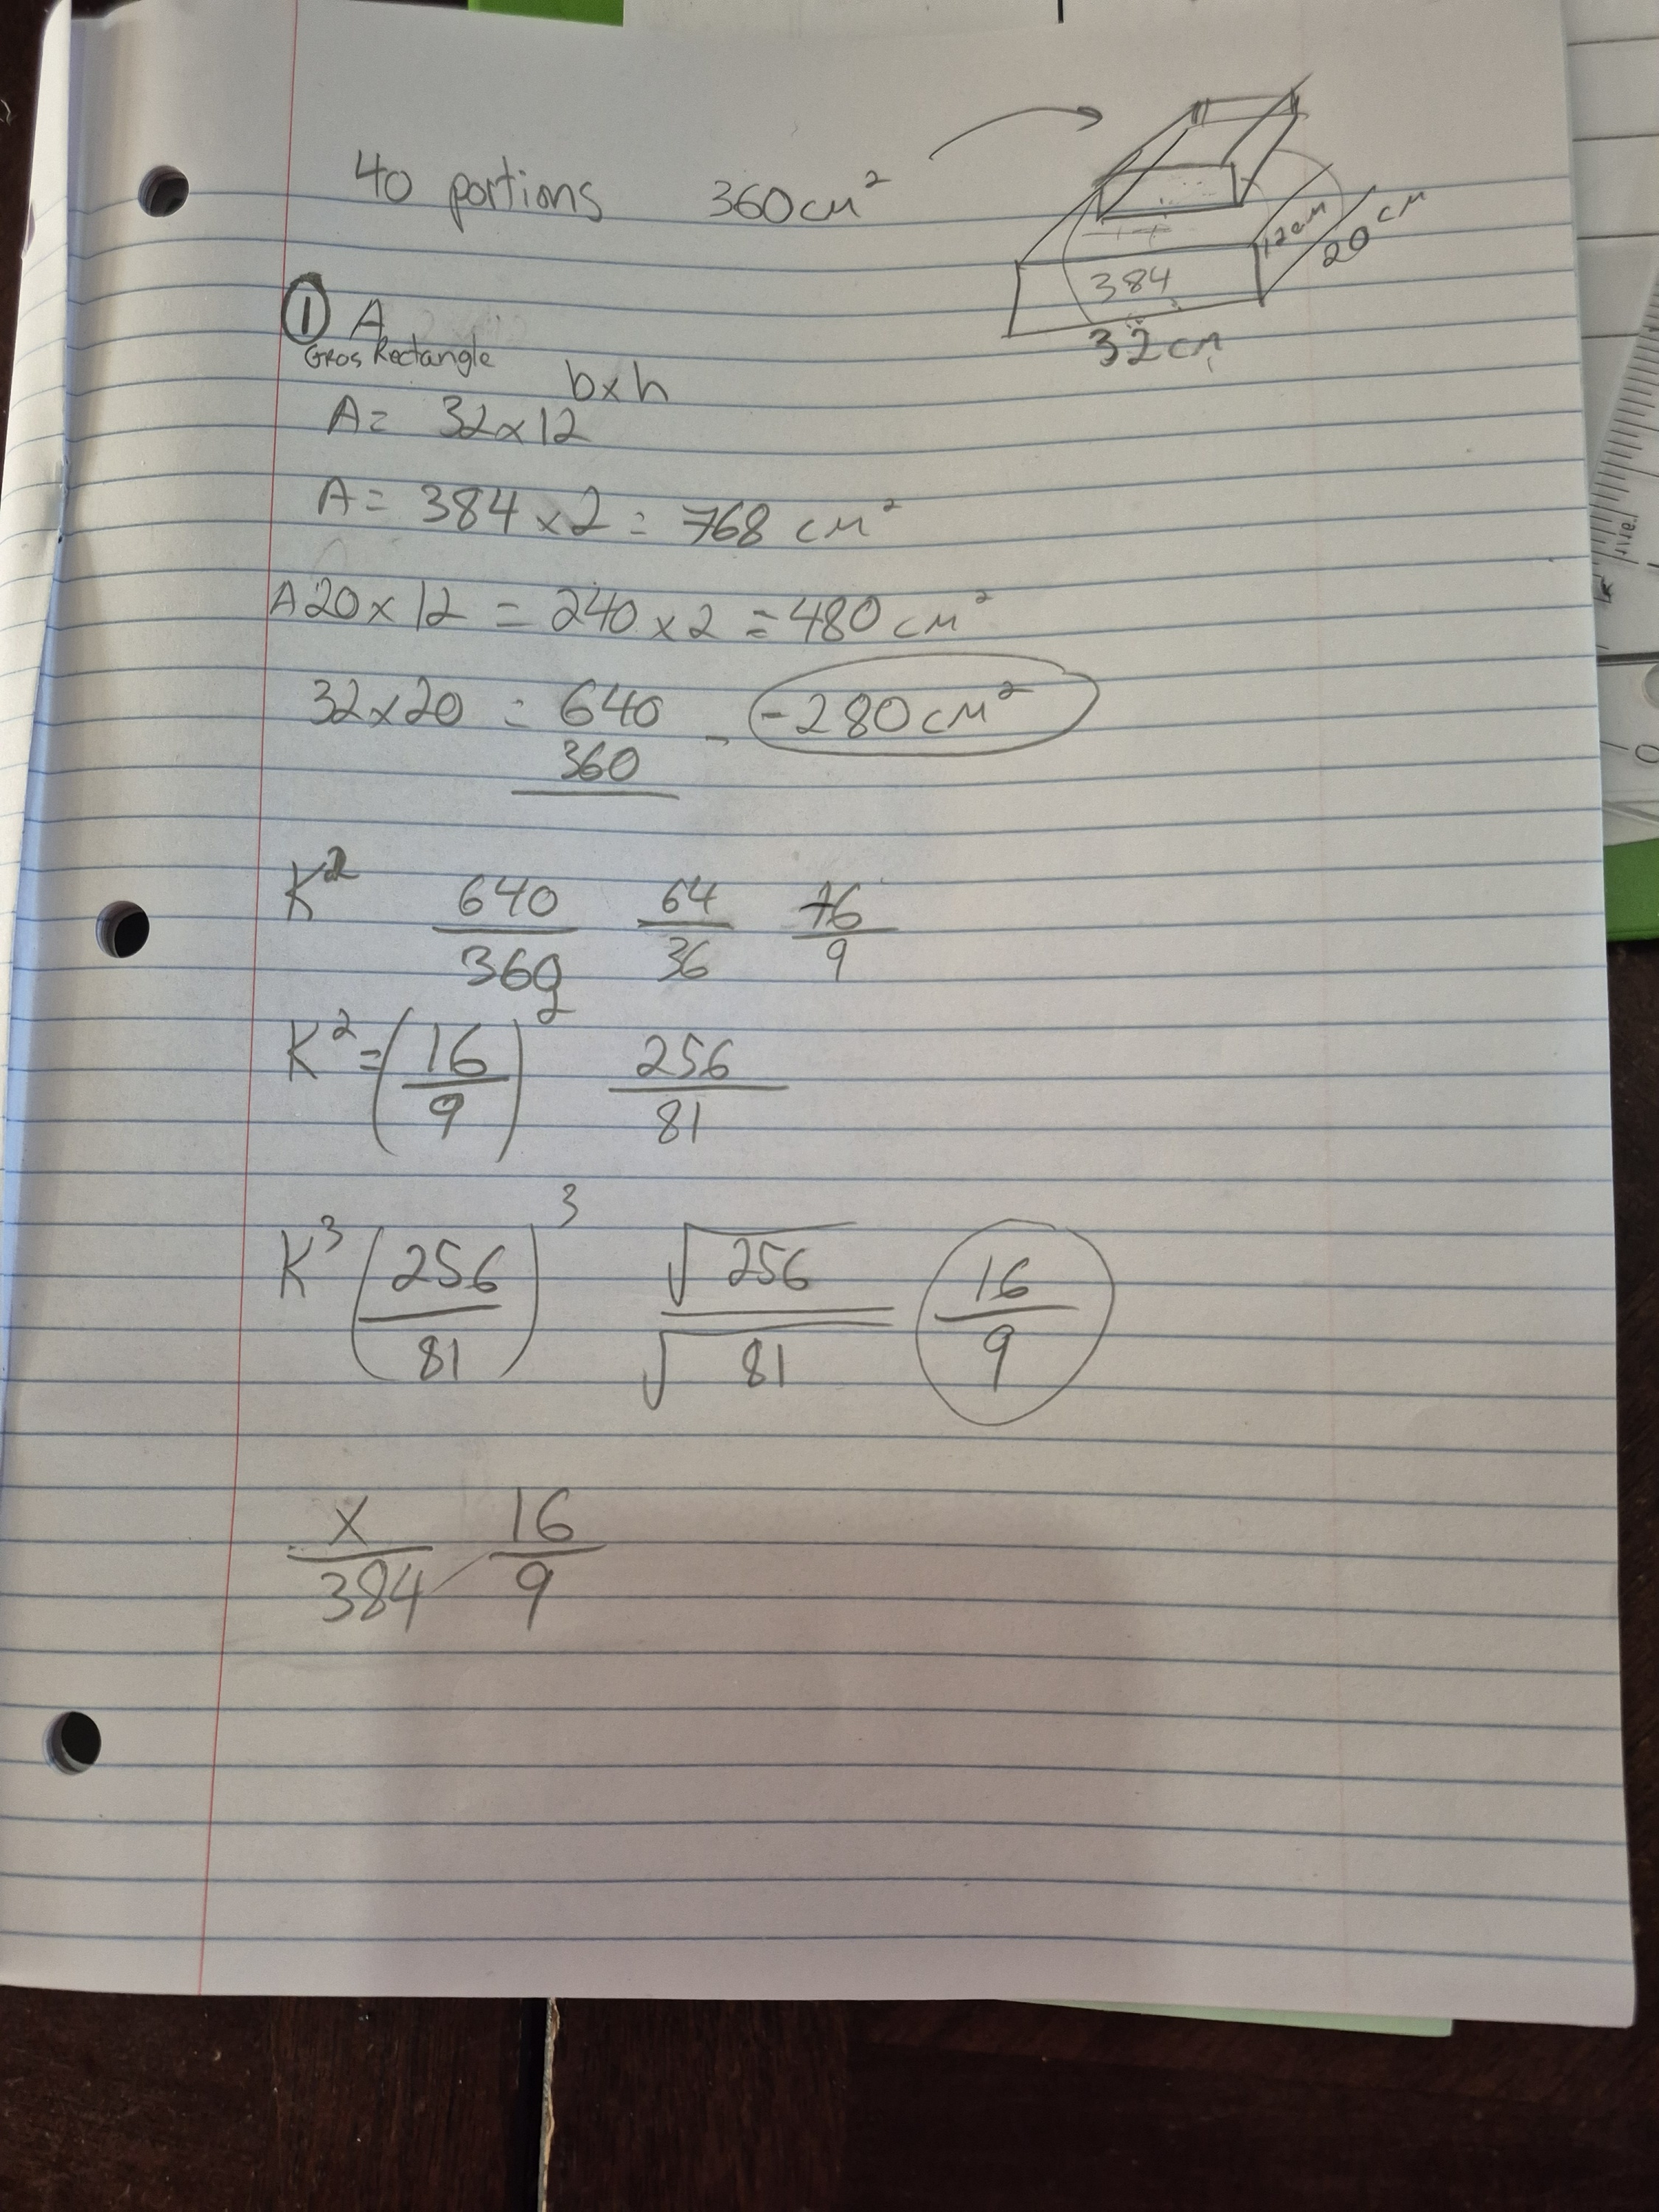 40 portions 360cm²
12cm
20 cm
384
32cm
① A
Gros Rectangle
b×h
A= 32×12
A= 384×2 = 768 cm²
A20×12 = 240×2 = 480cm²
32×20 = 640 - -280cm²
360
K² 640/360 64/36 16/9
K²=(16/9)² 256/81
K³(256/81)³ √256/√81 16/9
x/384 16/9